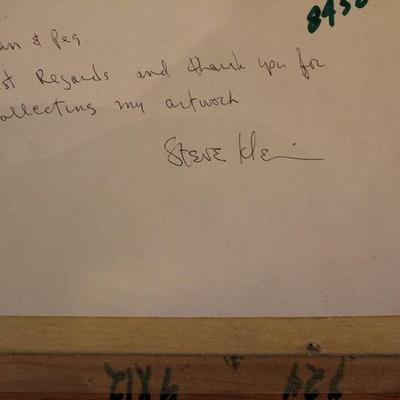 8450
an & Peg
st Regards and thank you for
ollecting my artwork
Steve Klein
9X12
$24